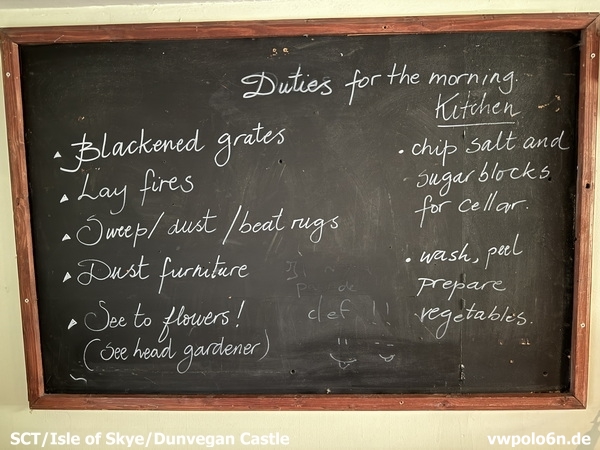 Duties for the morning.
Blackened grates
Lay fires
Sweep/dust/beat rugs
Dust furniture
See to flowers!
(See head gardener)
Kitchen
• chip salt and
sugar blocks
for cellar.
• wash, peel
prepare
vegetables.
de
clef !!
SCT/Isle of Skye/Dunvegan Castle
vwpolo6n.de